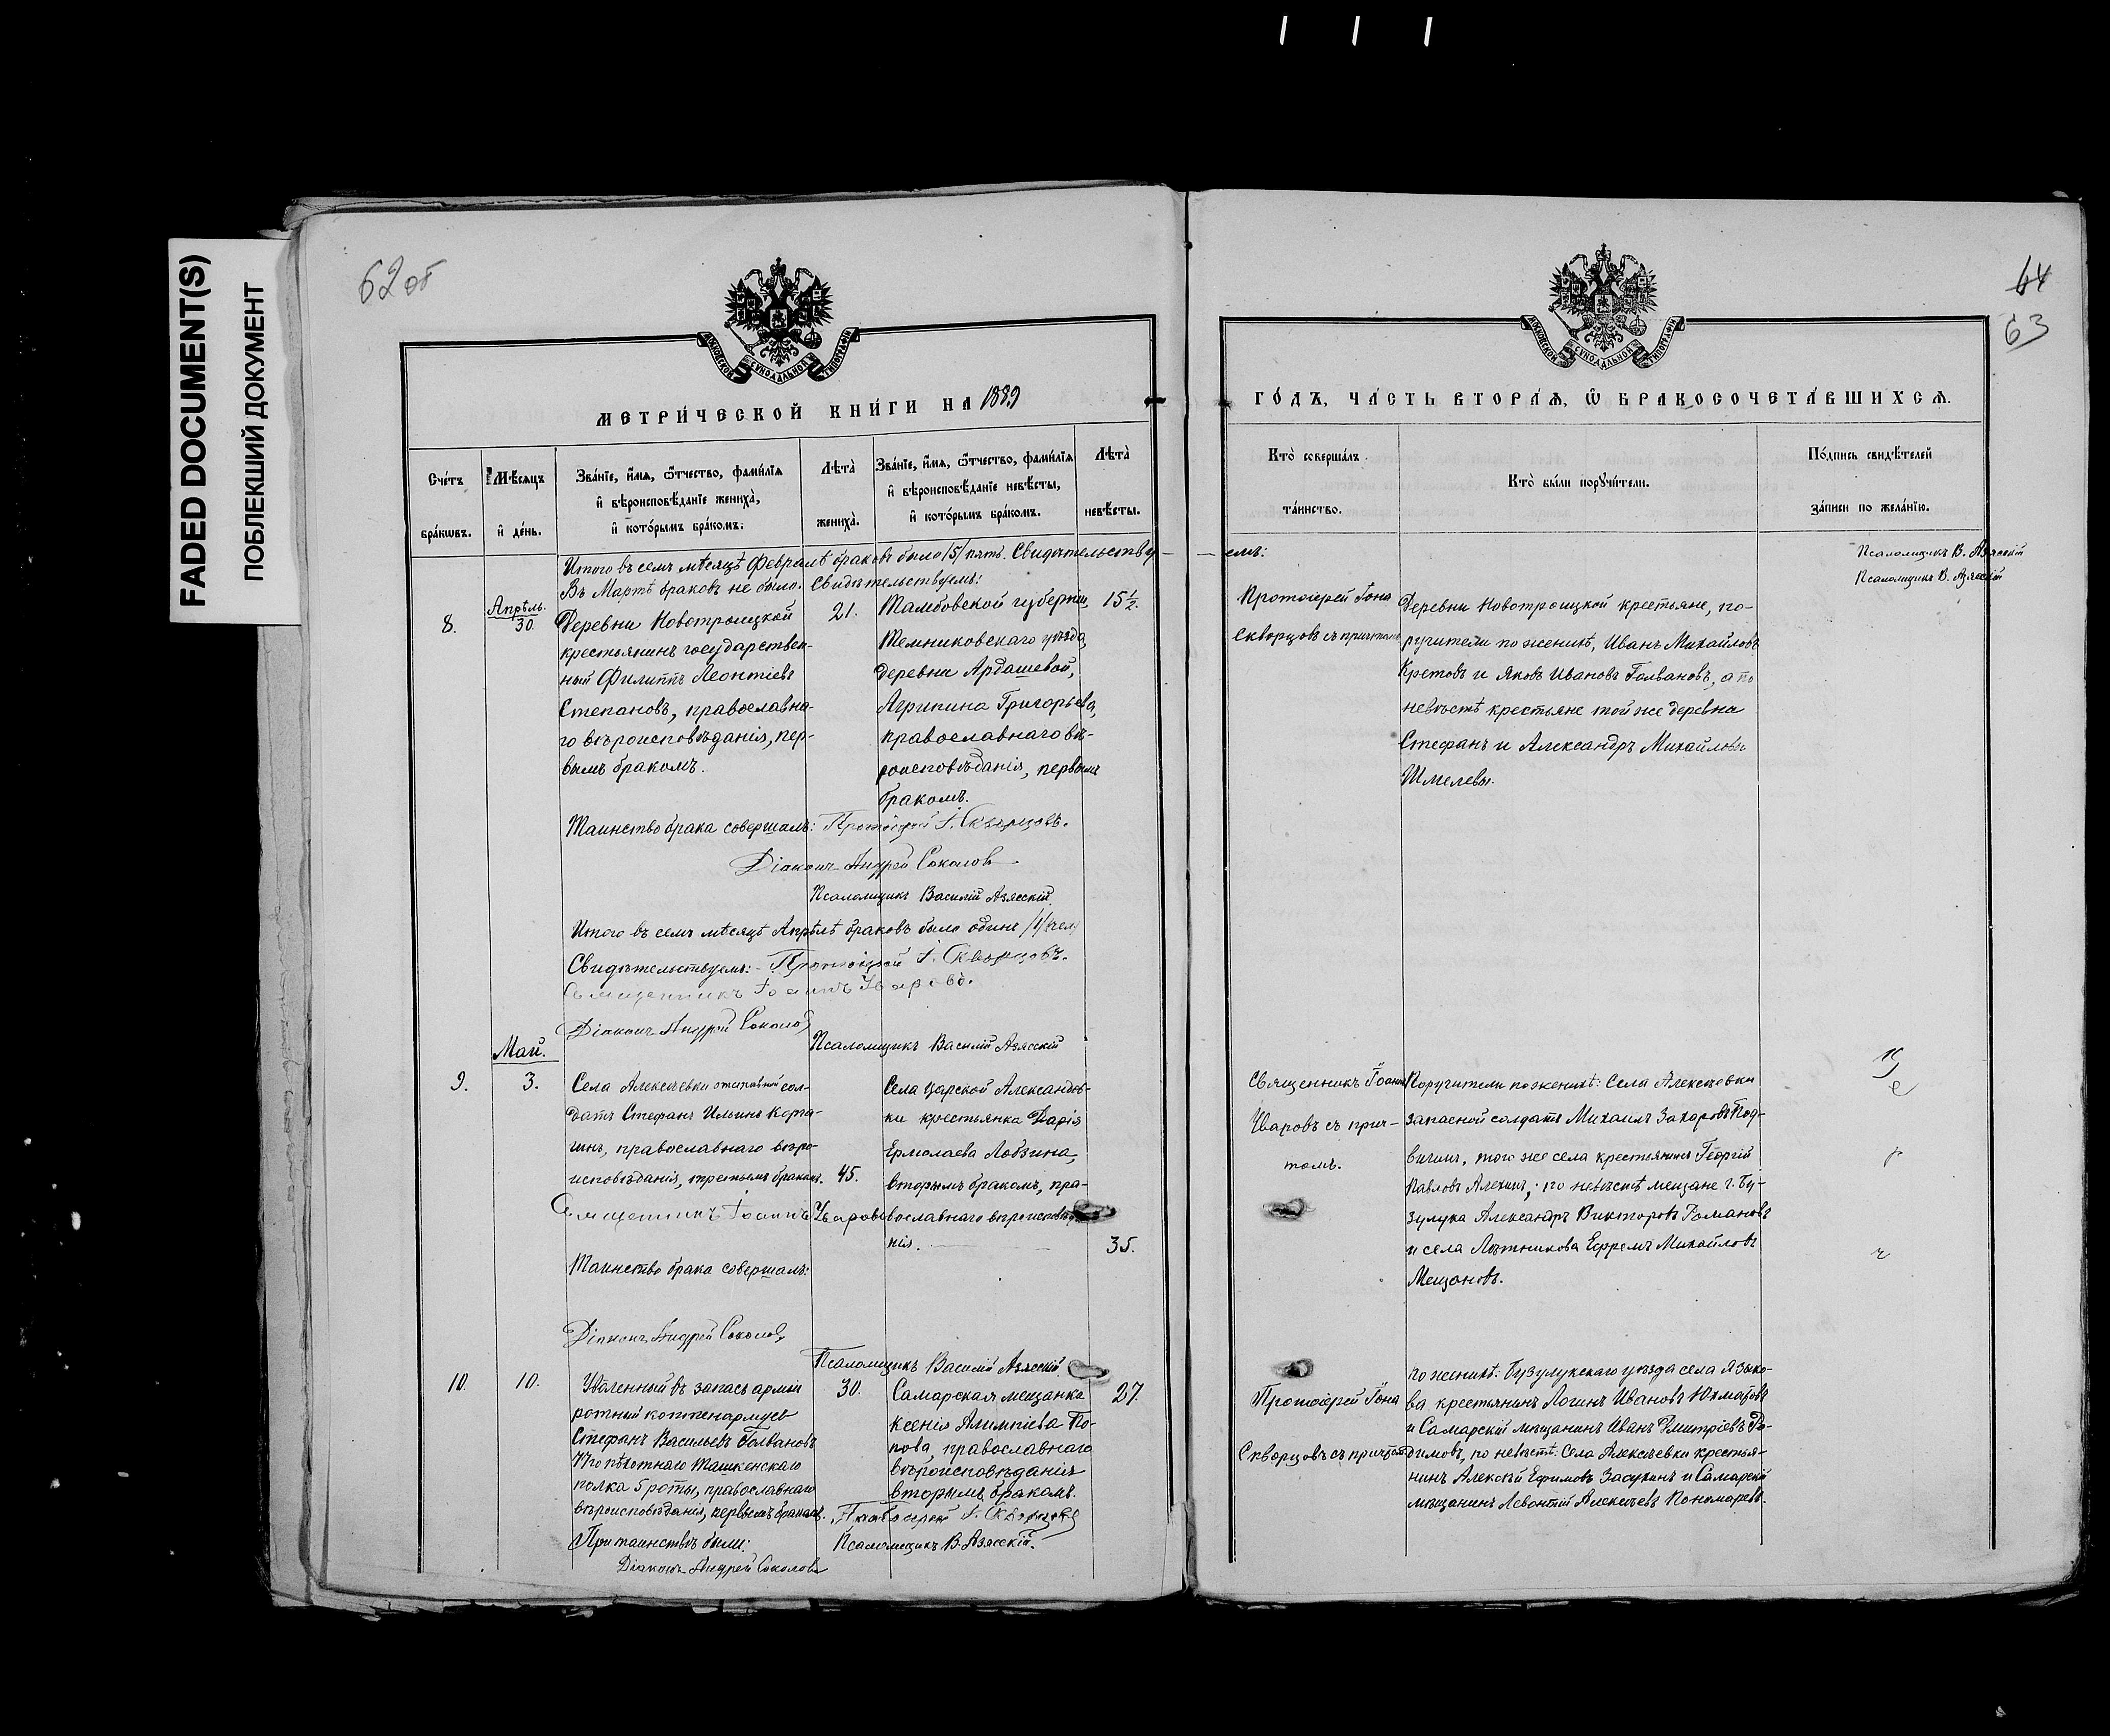 FADED DOCUMENT(S)
ПОБЛЕКШИЙ ДОКУМЕНТ
62 об
МОСКОВСКОЙ СУНОДАЛЬНОЙ ТИПОГРАФІИ
МЕТРИ́ЧЕСКОЙ КНИ́ГИ НА 1889
Сче́тъ бра́кωвъ.
Мѣ́сяцъ и҆ де́нь.
Зва́нїе, и҆́мѧ, ѻ҆́тчество, фами́лїѧ
и҆ вѣроисповѣ́данїе жениха̀,
и҆ кото́рымъ бра́комъ.
Лѣта̀ жениха̀.
Зва́нїе, и҆́мѧ, ѻ҆́тчество, фами́лїѧ
и҆ вѣроисповѣ́данїе невѣ́сты,
и҆ кото́рымъ бра́комъ.
Лѣта̀ невѣ́сты.
Итого въ семъ мѣсяцѣ Февралѣ браковъ было /5/ пять. Свидѣтельству-
Въ Мартѣ браковъ не было. Свидѣтельствуемъ:
8.
Апрѣль.
30.
Деревни Новотроицкой
крестьянинъ государствен-
ный Филиппъ Леонтіевъ
Степановъ, православна-
го вѣроисповѣданія, пер-
вымъ бракомъ.
21.
Тамбовской губерніи,
Темниковскаго уѣзда,
деревни Ардашевой,
Агрипина Григорьева,
православнаго вѣ-
роисповѣданія, первымъ
бракомъ.
15 ½.
Таинство брака совершалъ: Протоіерей І. Скворцовъ.
Діаконъ Андрей Соколовъ
Псаломщикъ Василій Азясскій.
Итого въ семъ мѣсяцѣ Апрѣлѣ браковъ было одинъ /1/
Свидѣтельствуемъ: Протоіерей І. Скворцовъ.
Священникъ Іоаннъ Уваровъ.
Діаконъ Андрей Соколовъ
Псаломщикъ Василій Азясскій
Май.
9.
3.
Села Алексѣевки отставной сол-
датъ Стефанъ Ильинъ Корга-
шнъ, православнаго вѣро-
исповѣданія, третьимъ бракомъ.
45.
Села Царской Александров-
ки крестьянка Дарія
Ермолаева Лобзина,
вторымъ бракомъ, пра-
вославнаго вѣроисповѣда-
нія.
35.
Священникъ Іоаннъ Уваровъ
Таинство брака совершалъ:
Діаконъ Андрей Соколовъ
Псаломщикъ Василій Азясскій.
10.
10.
Уволенный въ запасъ арміи
ротный каптенармусъ
Стефанъ Васильевъ Голвановъ
пѣхотнаго Ташкенскаго
полка 5 роты, православнаго
вѣроисповѣданія, первымъ бракомъ.
30.
Самарская мещанка
Ксенія Алимпіева По-
пова, православнаго
вѣроисповѣданія
вторымъ бракомъ.
27.
Протоіерей І. Скворцовъ
При таинствѣ были:
Псаломщикъ В. Азясскій.
Діаконъ Андрей Соколовъ
64
63
МОСКОВСКОЙ СУНОДАЛЬНОЙ ТИПОГРАФІИ
ГО́ДЪ, ЧА́СТЬ ВТОРА́Ѧ, Ѡ҆ БРАКОСОЧЕТА́ВШИХСѦ.
Кто̀ соверша́лъ та́инство.
Кто̀ бы́ли порꙋчи́тели.
По́дпись свидѣ́телей
за́писи по жела́нїю.
-емъ:
Псаломщикъ В. Азясскій
Псаломщикъ В. Азясскій
Протоіерей Іона
Скворцовъ съ причтомъ
Деревни Новотроицкой крестьяне, по-
ручители по женихѣ, Иванъ Михайловъ
Кретовъ и Яковъ Ивановъ Голвановъ, а по
невѣстѣ крестьяне той же деревни
Стефанъ и Александръ Михайловы
Шмелевы.
Священникъ Іоаннъ
Уваровъ съ прич-
томъ.
Поручители по женихѣ: Села Алексѣевки
запасной солдатъ Михаилъ Захаровъ Под-
вигинъ, того же села крестьянинъ Георгій
Павловъ Алехинъ; по невѣстѣ мещане г. Бу-
зулука Александръ Викторовъ Романовъ
и села Лѣтникова Ефремъ Михайловъ
Мещановъ.
Протоіерей Іона
Скворцовъ съ причтомъ
по женихѣ: Бузулукскаго уѣзда села Языко-
ва крестьянинъ Логинъ Ивановъ
и Самарскій мѣщанинъ Иванъ Дмитріевъ Ро-
димовъ, по невѣстѣ: Села Алексѣевки крестья-
нинъ Алексѣй Ефимовъ Засухинъ и Самарскій
мѣщанинъ Левонтій Алексѣевъ Пономаревъ.